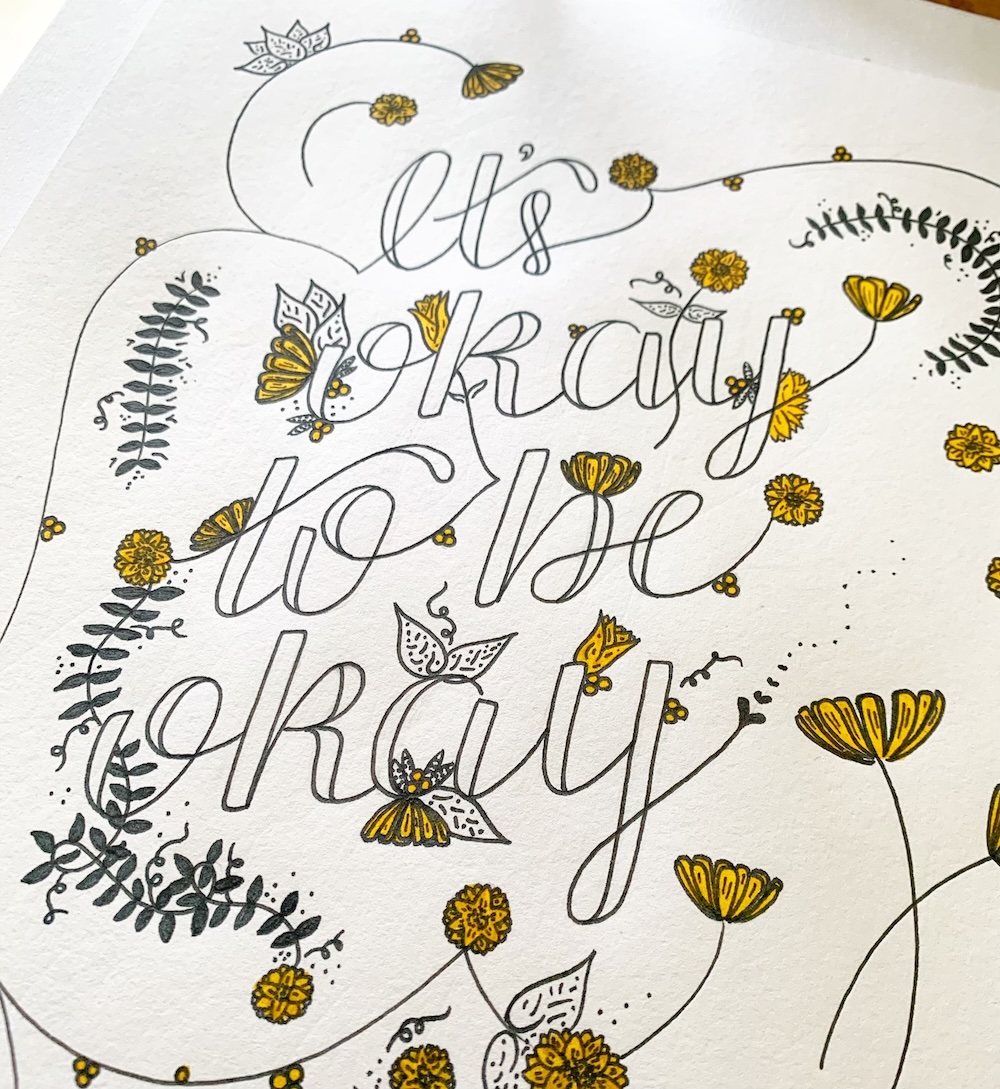 It's
okay
to be
okay